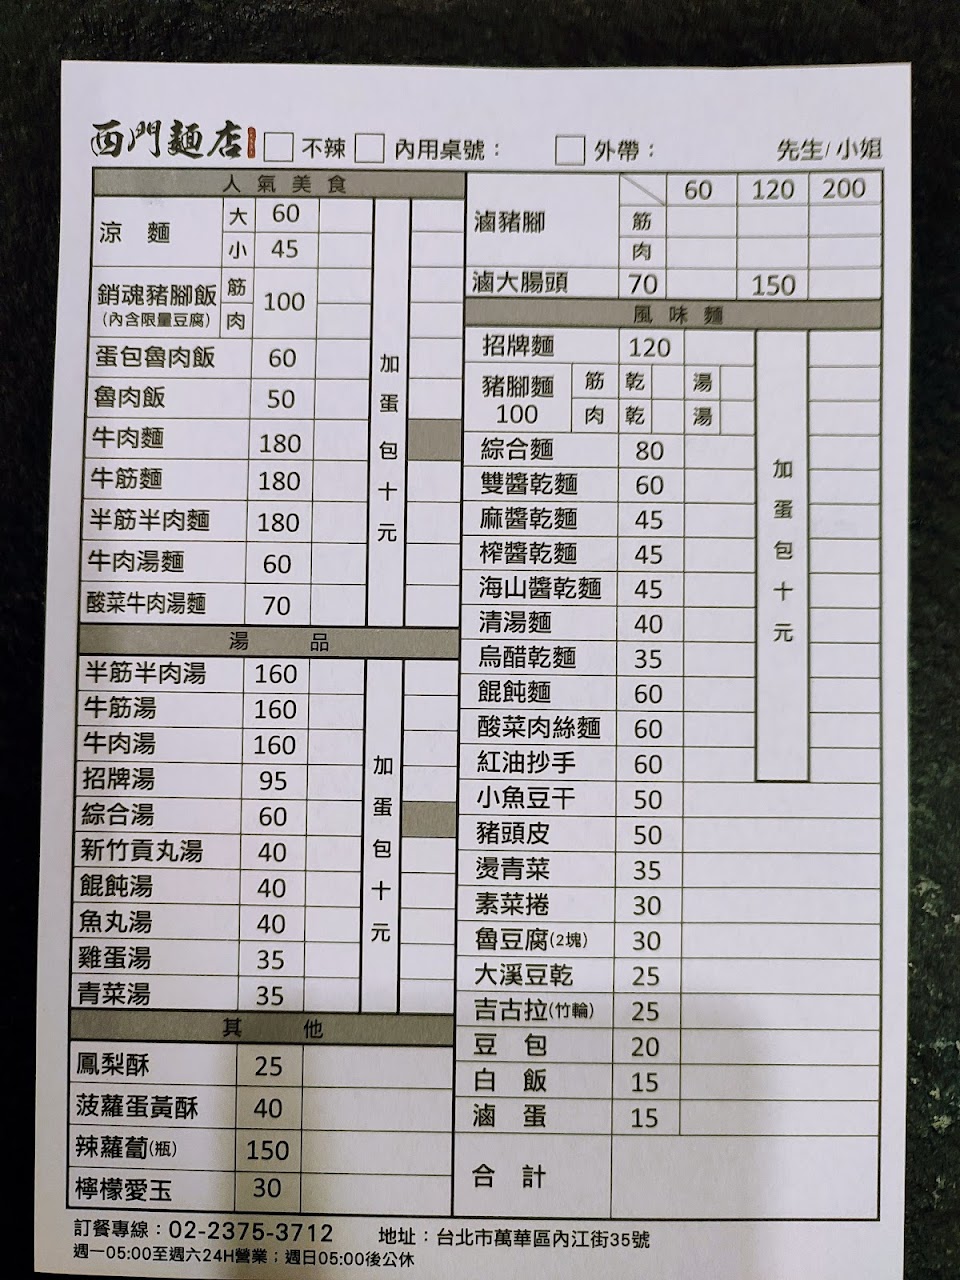 西門麵店 □ 不辣 □ 內用桌號： □ 外帶： 先生/小姐
人氣美食
涼麵 大 60
小 45
銷魂豬腳飯 筋 100
(內含限量豆腐) 肉
蛋包魯肉飯 60
魯肉飯 50
牛肉麵 180
牛筋麵 180
半筋半肉麵 180
牛肉湯麵 60
酸菜牛肉湯麵 70
加蛋包十元
湯品
半筋半肉湯 160
牛筋湯 160
牛肉湯 160
招牌湯 95
綜合湯 60
新竹貢丸湯 40
餛飩湯 40
魚丸湯 40
雞蛋湯 35
青菜湯 35
加蛋包十元
其他
鳳梨酥 25
菠蘿蛋黃酥 40
辣蘿蔔(瓶) 150
檸檬愛玉 30
60 120 200
滷豬腳 筋
肉
滷大腸頭 70 150
風味麵
招牌麵 120
豬腳麵 筋 乾 湯
100 肉 乾 湯
綜合麵 80
雙醬乾麵 60
麻醬乾麵 45
榨醬乾麵 45
海山醬乾麵 45
清湯麵 40
烏醋乾麵 35
餛飩麵 60
酸菜肉絲麵 60
紅油抄手 60
加蛋包十元
小魚豆干 50
豬頭皮 50
燙青菜 35
素菜捲 30
魯豆腐(2塊) 30
大溪豆乾 25
吉古拉(竹輪) 25
豆包 20
白飯 15
滷蛋 15
合計
訂餐專線：02-2375-3712 地址：台北市萬華區內江街35號
週一05:00至週六24H營業；週日05:00後公休